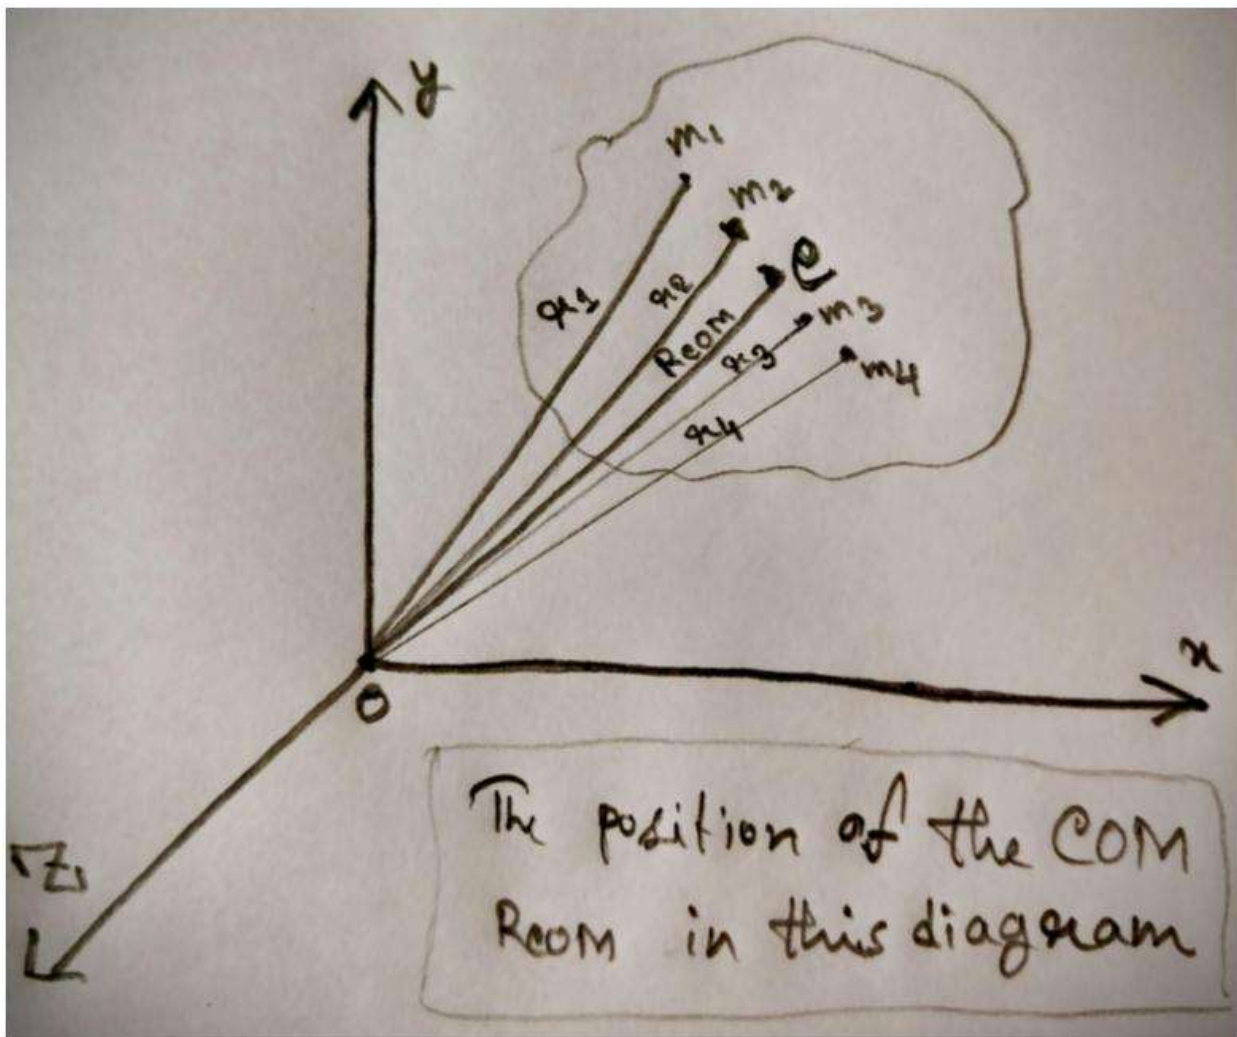 y
m1
m2
C
m3
m4
r1
r2
RCOM
r3
r4
x
O
Z
The position of the COM
RCOM in this diagram